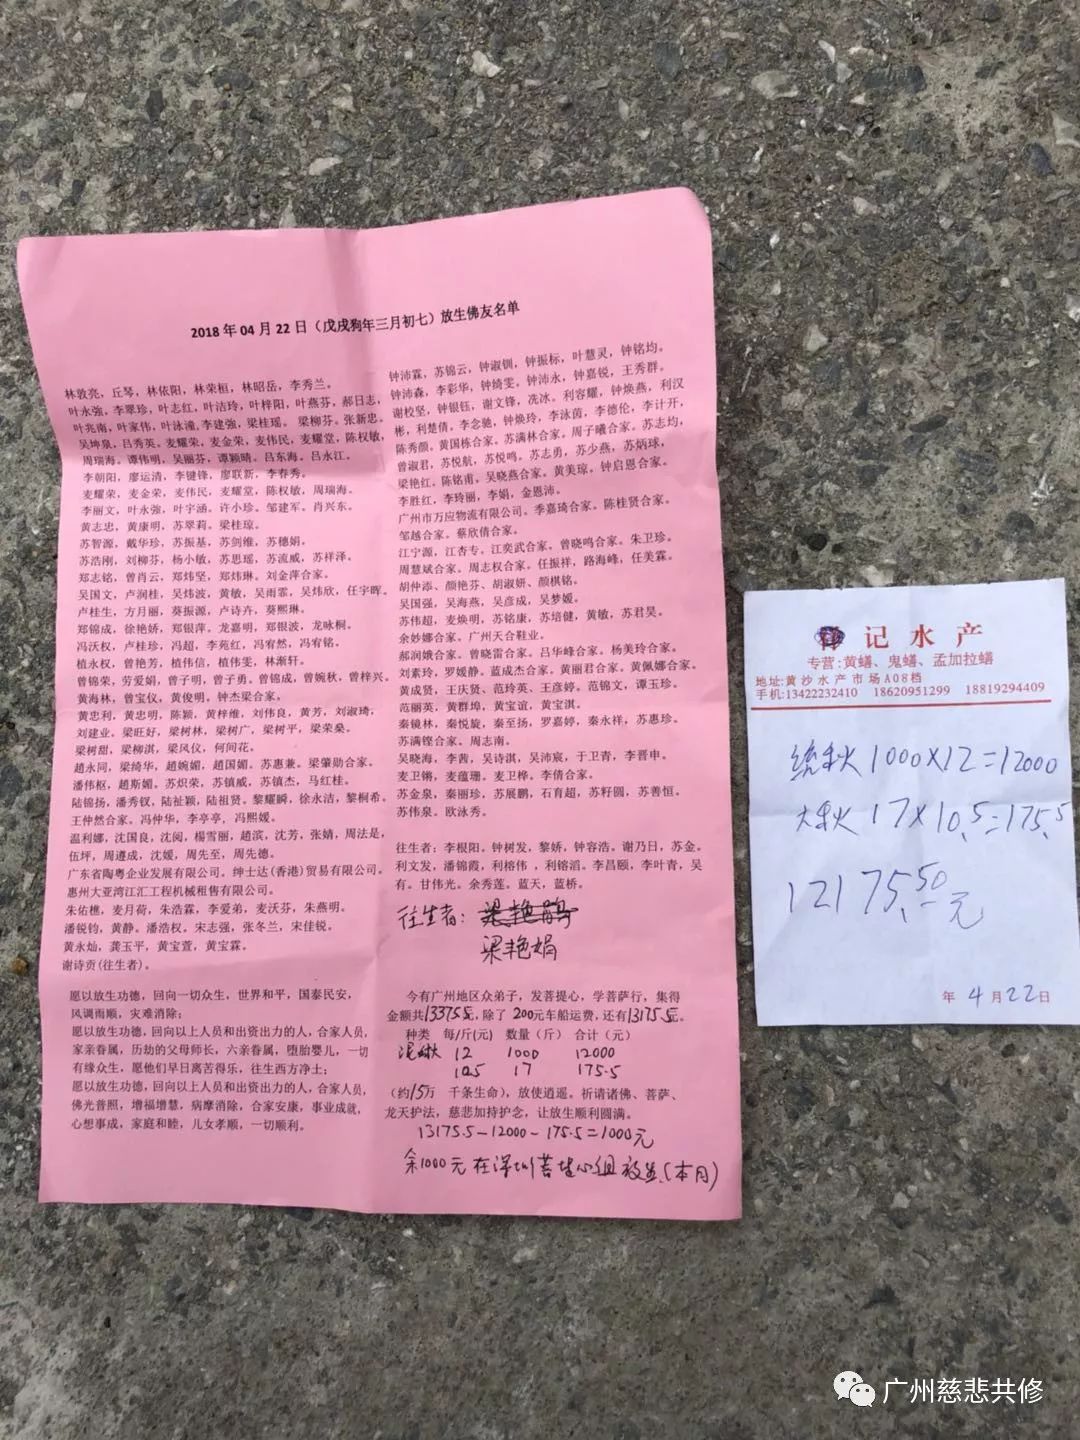 2018 年 04 月 22 日（戊戌狗年三月初七）放生佛友名单
林敦亮，丘琴，林依阳，林荣桓，林昭岳，李秀兰。
叶永強，李翠珍，叶志红，叶洁玲，叶梓阳，叶燕芬，郝日志，
叶兆南，叶家伟，叶泳潼，李建強，梁桂瑶。 梁柳芬。张新忠。
吴坤泉，吕秀英。麦耀荣，麦金荣，麦伟民，麦耀堂，陈权敏，
周瑞海。谭伟明，吴丽芬，谭颖晴。吕东海。吕永江。
李朝阳，廖运清，李键锋，廖联新，李春秀。
麦耀荣，麦金荣，麦伟民，麦耀堂，陈权敏，周瑞海。
李丽文，叶永強，叶宇涵。许小珍。邹建军。肖兴东。
黄志忠，黄康明，苏翠莉。梁桂琼。
苏智源，戴华珍，苏振基，苏剑维，苏穗娟。
苏浩刚，刘柳芬，杨小敏，苏思瑶，苏流威，苏祥泽。
郑志铭，曾肖云，郑炜坚，郑炜琳。刘金萍合家。
吴国文，卢润桂，吴炜波，黄敏，吴雨霏，吴炜欣，任宇晖。
卢桂生，方月丽，葵振源，卢诗卉，葵熙琳。
郑锦成，徐艳娇，郑银萍。龙嘉明，郑银波，龙咏桐。
冯沃权，卢桂珍，冯超，李苑红，冯宥然，冯宥铭。
植永权，曾艳芳，植伟信，植伟雯，林漸轩。
曾锦荣，劳爱娟，曾子明，曾子勇，曾锦成，曾婉秋，曾梓兴。
黄海林，曾宝仪，黄俊明，钟杰梁合家。
黄忠利，黄忠明，陈颖，黄梓维，刘伟良，黄芳，刘淑琦，
刘建业，梁旺好，梁树林，梁树广，梁树平，梁荣燊。
梁树甜，梁柳淇，梁风仪，何间花。
趙永同，梁绮华，趙婉媚，趙国媚。苏惠兼。梁肇勋合家。
潘伟枢，趙斯媚，苏炽荣，苏镇威，苏镇杰，马红桂。
陆锦扬，潘秀钗，陆祉颖，陆祖贤。黎耀瞬，徐永洁，黎桐希。
王仲然合家。冯仲华，李亭亭，冯熙媛。
温利娜，沈国良，沈阅，楊雪丽，趙滨，沈芳，张婧，周法是，
伍坪，周遵成，沈媛，周先至，周先德。
广东省陶粤企业发展有限公司。绅士达(香港)贸易有限公司。
惠州大亚湾江汇工程机械租售有限公司。
朱佑樵，麦月荷，朱浩霖，李爱弟，麦沃芬，朱燕明。
潘锐钧，黄静。潘浩权。宋志强，张冬兰，宋佳锐。
黄永灿，龚玉平，黄宝萱，黄宝霖。
谢诗贡(往生者)。
愿以放生功德，回向一切众生，世界和平，国泰民安，
风调雨顺，灾难消除；
愿以放生功德，回向以上人员和出资出力的人，合家人员，
家亲眷属，历劫的父母师长，六亲眷属，堕胎婴儿，一切
有缘众生，愿他们早日离苦得乐，往生西方净土；
愿以放生功德，回向以上人员和出资出力的人，合家人员，
佛光普照，增福增慧，病摩消除，合家安康，事业成就，
心想事成，家庭和睦，儿女孝顺，一切顺利。
钟沛霖，苏锦云，钟淑钏，钟振标，叶慧灵，钟铭均。
钟沛森，李彩华，钟绮雯。钟沛永，钟嘉锐，王秀群。
谢校坚，钟银钰，谢文锋，冼冰。利容耀，钟焕燕，利汉
彬，利楚倩，李念驰，钟焕玲，李泳茵，李德伦，李计开，
陈秀颜。黄国栋合家。苏满林合家。周子曦合家。苏志均，
曾淑君，苏悦航，苏悦鸣。苏志勇，苏少燕，苏炳球，
梁艳红，陈铭甫。吴晓燕合家。黄美琼，钟启恩合家。
李胜红，李玲丽，李娟，金恩沛。
广州市万应物流有限公司。季嘉琦合家。陈桂贤合家。
邹越合家。蔡欣倩合家。
江宁源，江杏专。江奕武合家。曾晓鸣合家。朱卫珍。
周慧斌合家。周志权合家。任振祥，路海峰，任美霖。
胡仲添、颜艳芬、胡淑妍、颜棋铭。
吴国强，吴海燕，吴彦成，吴梦媛。
苏伟超，麦焕明，苏铭康，苏培健，黄敏，苏君昊。
余妙娜合家。广州天合鞋业。
郝润娥合家。曾晓雷合家。吕华峰合家。杨美玲合家。
刘素玲，罗媛静。蓝成杰合家。黄丽君合家。黄佩娜合家。
黄成贤，王庆贤、范玲英、王彦婷。范锦文，谭玉珍。
范丽英，黄群埠，黄宝谊，黄宝淇。
秦镜林，秦悦旋，秦至扬，罗嘉婷，秦永祥，苏惠珍。
苏满铿合家。周志南。
吴晓海，李茜，吴诗淇，吴沛宸，于卫青，李晋申。
麦卫锵，麦蕴珊。麦卫桦。李倩合家。
苏金泉，秦丽珍，苏展鹏，石育超，苏籽圆，苏善恒。
苏伟泉。欧泳秀。
往生者：李根阳。钟树发，黎娇，钟容浩。谢乃日，苏金。
利文发，潘锦霞，利榕伟 ，利榕滔。李昌颐，李叶青，吴
有。甘伟光。余秀莲。蓝天，蓝桥。
往生者：梁艳鹃
梁艳娟
今有广州地区众弟子，发菩提心，学菩萨行，集得
金额共13375.5元，除了 200元车船运费，还有13175.5元。
种类 每/斤(元) 数量（斤） 合计（元）
泥鳅 12 1000 12000
10.5 17 175.5
（约15万 千条生命），放使逍遥。祈请诸佛、菩萨、
龙天护法，慈悲加持护念，让放生顺利圆满。
13175.5-12000-175.5=1000元
余1000元在深圳菩提心组放生(本月)
记 水 产
专营:黄鳝、鬼鳝、孟加拉鳝
地址:黄沙水产市场A08档
手机:13422232410 18620951299 18819294409
统秋 1000X12=12000
大秋 17X10.5=175.5
12175.50元
年 4 月 22 日
广州慈悲共修